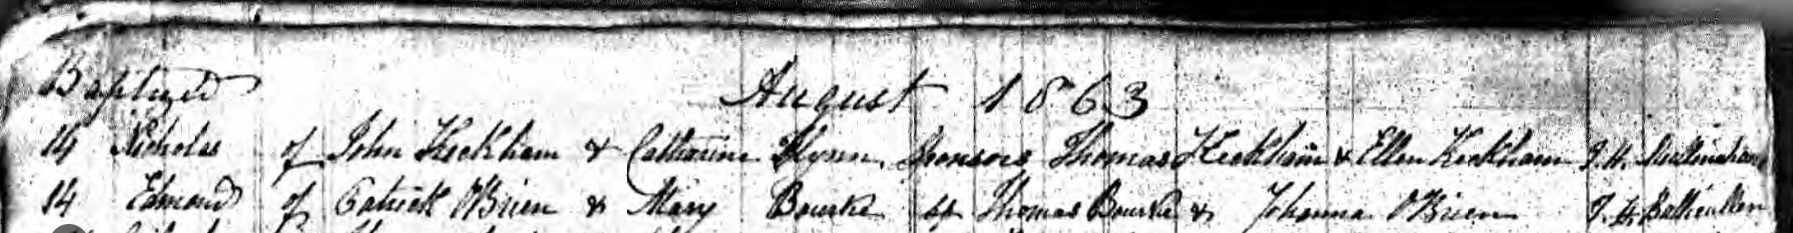 Baptized August 1863
14 Nicholas of John Kickham & Catharine Flynn Sponsors Thomas Kickham & Ellen Kickham J. H. Mullinahone
14 Edmond of Patrick O'Brien & Mary Bourke Sp Thomas Bourke & Johanna O'Brien J. H.